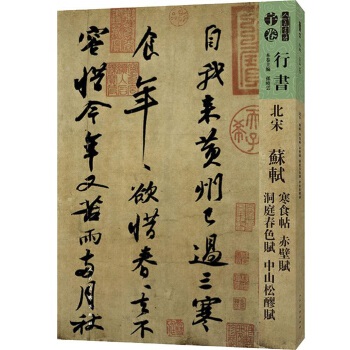 自我来黄州已過三寒
食年年欲惜春春去不
容惜今年又苦雨兩月秋
行書
北宋 蘇軾
寒食帖 赤壁賦
洞庭春色賦 中山松醪賦